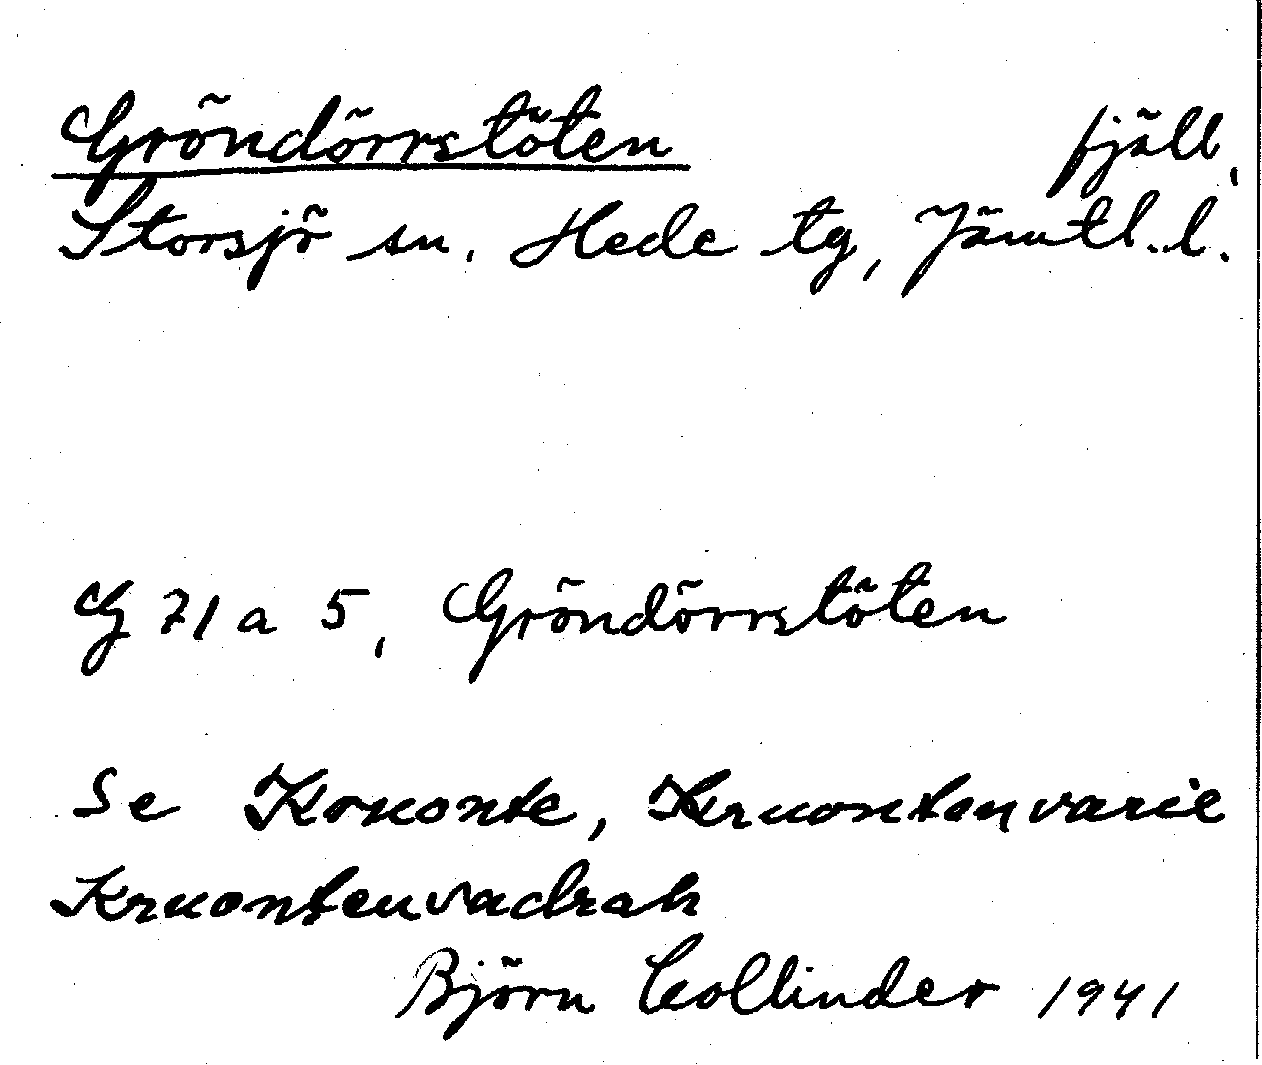 Gröndörrstöten fjäll,
Storsjö sn, Hede tg, Jämtl. l.
G 71 a 5, Gröndörrstöten
Se Kruonte, Kruontenvarie
Kruontenvadrah
Björn Collinder 1941